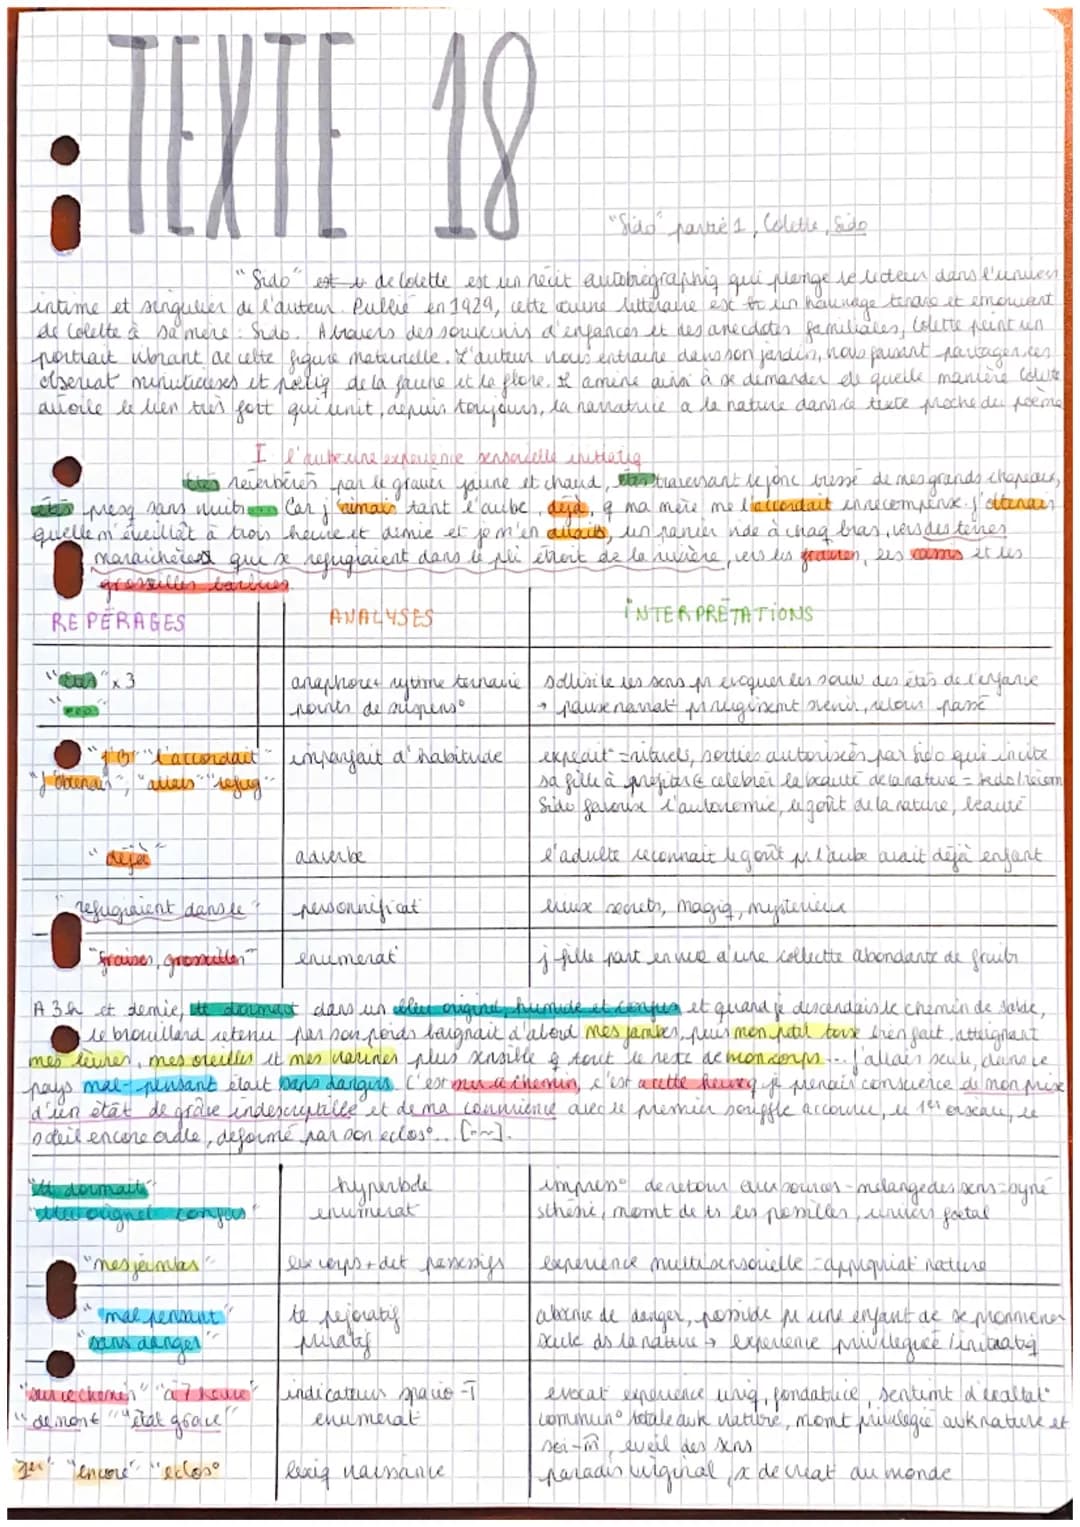 TEXTE 18
"Sido" partie 1, Colette, Sido
"Sido" de Colette est un récit autobiographiq qui plonge le lecteur dans l'univers
intime et singulier de l'auteur. Publié en 1929, cette œuvre littéraire est un hommage tendre et émouvant
de Colette à sa mère : Sido. A travers des souvenirs d'enfances et des anecdotes familiales, Colette peint un
portrait vibrant de cette figure maternelle. L'auteur nous entraine dans son jardin, nous faisant partager ces
observat minutieuses et poétiq de la faune et la flore. amène ainsi à se demander de quelle manière Colette
dévoile le lien très fort qui unit, depuis toujours, la narratrice a la nature dans ce texte proche du poème
I l'aube une expérience sensorielle initiatiq
étés réverbérés par le gravier jaune et chaud, étés traversant le jonc tressé de mes grands chapeaux,
étés presq sans nuits Car j'aimais tant l'aube, déjà, q ma mère me l'accordait en récompense. J'obtenais
qu'elle m'éveillât à trois heure et demie et je m'en allais, un panier vide à chaq bras, vers des terres
maraichères qui se refugiaient dans le pli étroit de la rivière, vers les fraises, les cassis et les
groseilles barbues.
REPÉRAGES ANALYSES INTERPRÉTATIONS
"étés" x3 anaphore+ rytime ternaire sollicite les sens pr évoquer les souv des étés de l'enfance
points de suspens° → pause narrat pr resurgissent svenir, retour passé
"l'accordait" imparfait d'habitude expédit° = rituels, sorties autorisées par Sido qui incite
"j'obtenais", "allais" "refug" sa fille à profiter & celebrer la beauté de la nature = Sido/récom
Sido favorise l'autonomie, le goût de la nature, beauté
"déjà" adverbe l'adulte reconnait le goût pr l'aube avait déjà enfant
"refugiaient dans le" personnificat° lieux secrets, magiq, mysterieux
"fraises, groseilles" enumerat° j fille part en vue d'une collecte abondante de fruits
A 3h et demie, tt dormait dans un bleu originel, humide et confus et quand je descendais le chemin de sable,
le brouillard retenu par son poids baignait d'abord mes jambes, puis mon petit torse bien fait, atteignant
mes lèvres, mes oreilles et mes narines plus sensible q tout le reste de mon corps... j'allais seule, dans ce
pays mal-pensant était sans dangers. C'est sur ce chemin, c'est a cette heure q je prenais conscience de mon prix
d'un état de grâce indescriptible et de ma connivence avec le premier souffle accouru, le 1er oiseau, le
soleil encore ovale, déformé par son eclos°... [...].
"tt dormait" hyperbole impress° de retour aux sources - mélange des sens = syné
"bleu originel confus" enumerat° sthésie, momt de ts les possibles, univers foetal
"mes jambes" lex corps + det possessifs experience multisensorielle = appropriat° nature
"mal pensant" te pejoratif absence de danger, possible pr une enfant de se promener
"sans danger" privatif seule ds la nature → experience privilegiée / initiatiq
"sur ce chemin" "a 7 heure" indicateur spatio-T evocat° expérience uniq, fondatrice, sentimt d'exaltat°
"de mon" "état grâce" enumerat° commun° totale avk nature, momt privilégié avk nature et
soi-m̂, eveil des sens
"1er" "encore" "eclos°" lexiq naissance paradis originel, de creat° du monde